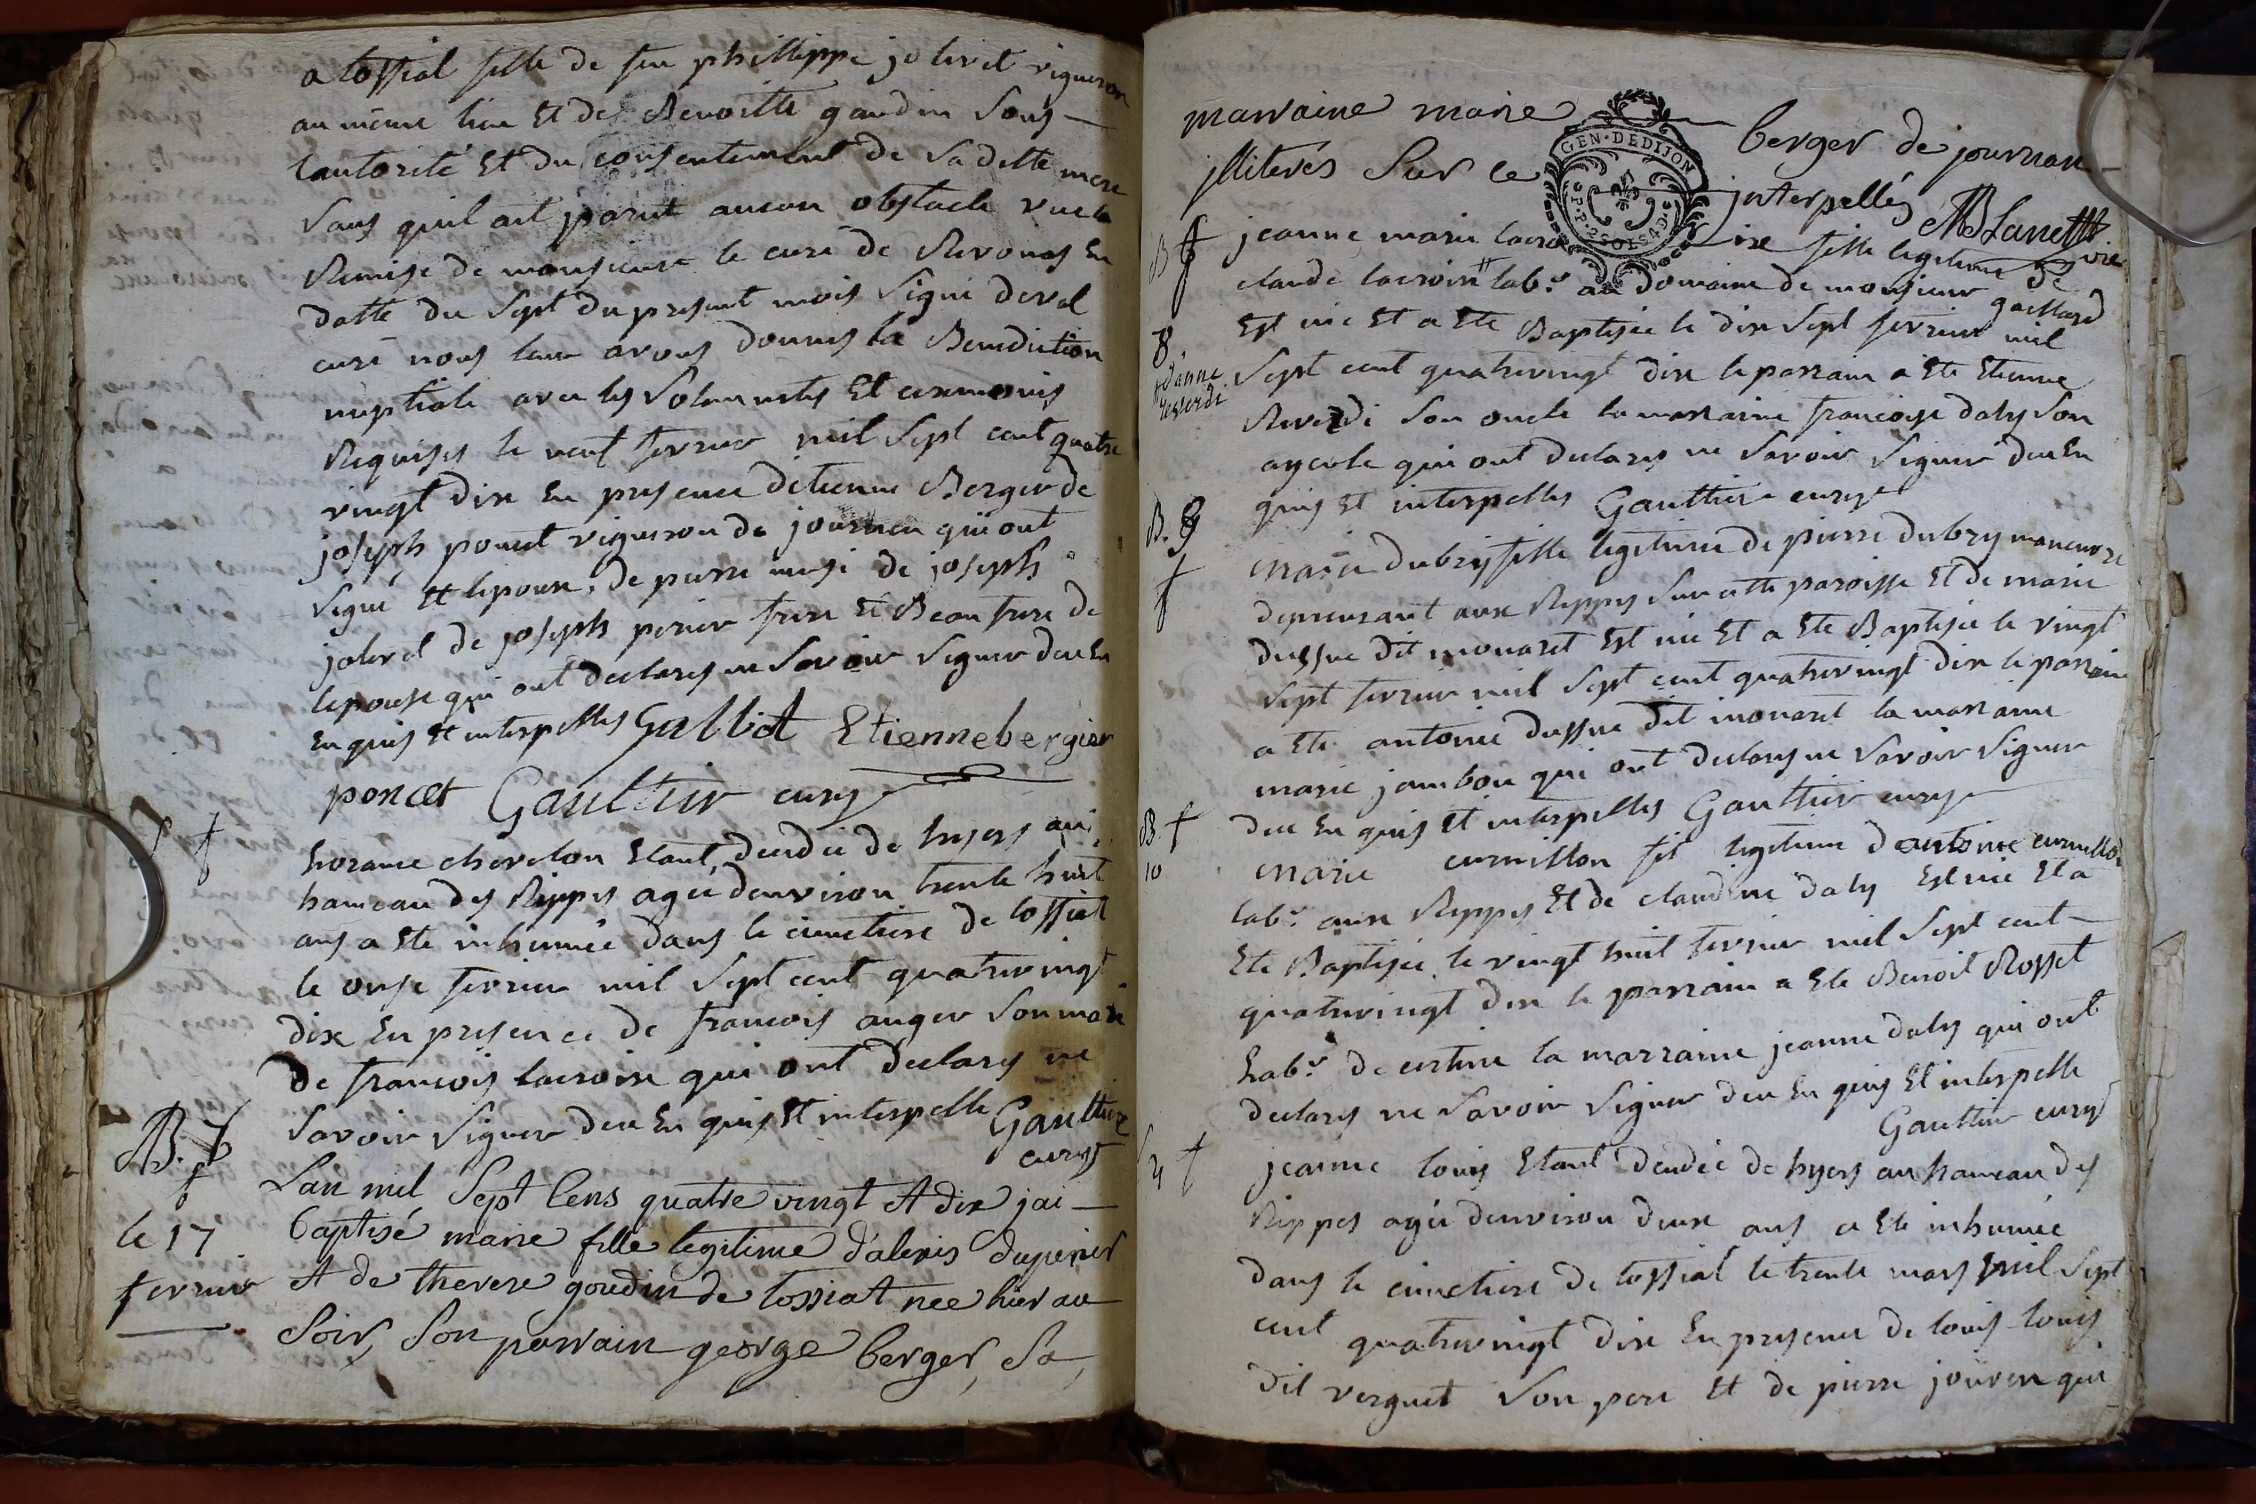 a tossiat fille de feu phillippe jolivet vigneron
au même lieu Et de Benoitte gaudin sous
lautorité Et du consentement de sa ditte mere
sans quil ait parut aucun obstacle vue la
Remise de monsieur le curé de Revonas En
datte du sept du present mois signé deval
curé nous leur avons donnés la Benediction
nuptiale avec les solemnités Et ceremonies
Requises le neuf fevrier mil sept cent quatre
vingt dix En presence detienne Berger de
joseph poncet vigneron de journan qui ont
signé Et lepoux, de pierre de joseph
jolivet de joseph perier frere Et Beau frere de
lepouse qui ont declarés ne savoir signer deu En
En quis Et interpellés Gallict Etiennebergier
poncet Gaultier curé
S †
horance chevelon Etant decedée de hyers au
hameau des Rippes agée denviron trente huit
ans a Ete inhumée dans le cimetiere de tossiat
le onse fevrier mil sept cent quatrevingt
dix En presence de francois auger son mari
de francois lacroix qui ont declarés ne
savoir signer deu En quis Et interpelle Gaultier
curé
B. 7
le 17
fevrier
Lan mil sept Cens quatre vingt et dix jai
baptisé marie fille legitime d'alexis duperier
et de therese goudin de tossiat nee hier au
soir, son parrain george berger, sa
marraine marie berger de journan
jlliterés sur ce interpellés
GEN·DEDIJON
B †
8.
jeanne marie lacroix fille legitime de
claude lacroix # labr. au domaine de monsieur gaillard
# Et danne Reverdi
Est née Et a Ete Baptisée le dix sept fevrier mil
sept cent quatrevingt dix le parrain a Ete Etienne
Reverdi son oncle la marraine francoise daly son
ayeule qui ont declarés ne savoir signer deu En
quis Et interpellés Gaultier curé
B. 9
†
marie dubry fille legitime de pierre dubry manœuvre
demeurant aux Rippes sur cette paroisse Et de marie
dussue dit monaret Est née Et a Ete Baptisée le vingt
sept fevrier mil sept cent quatrevingt dix le parrain
a Ete antoine dussue dit monaret la marraine
marie jambon qui ont declarés ne savoir signer
deu En quis Et interpellés Gaultier curé
B †
10
marie curnillon fil legitime dantoine curnillon
labr. aux Rippes Et de claudine daly Est née Et a
Ete Baptisée le vingt huit fevrier mil sept cent
quatrevingt dix le parrain a Ete Benoit Rosset
habr. de certine la marraine jeanne daly qui ont
declarés ne savoir signer deu En quis Et interpelle
Gaultier curé
†
jeanne louis Etant decedée de hyers au hameau des
Rippes agée denviron deux ans a Ete inhumée
dans le cimetiere de tossiat le trente mars mil sept
cent quatrevingt dix En presence de louis louis
dit verguet son pere Et de pierre jouven qui